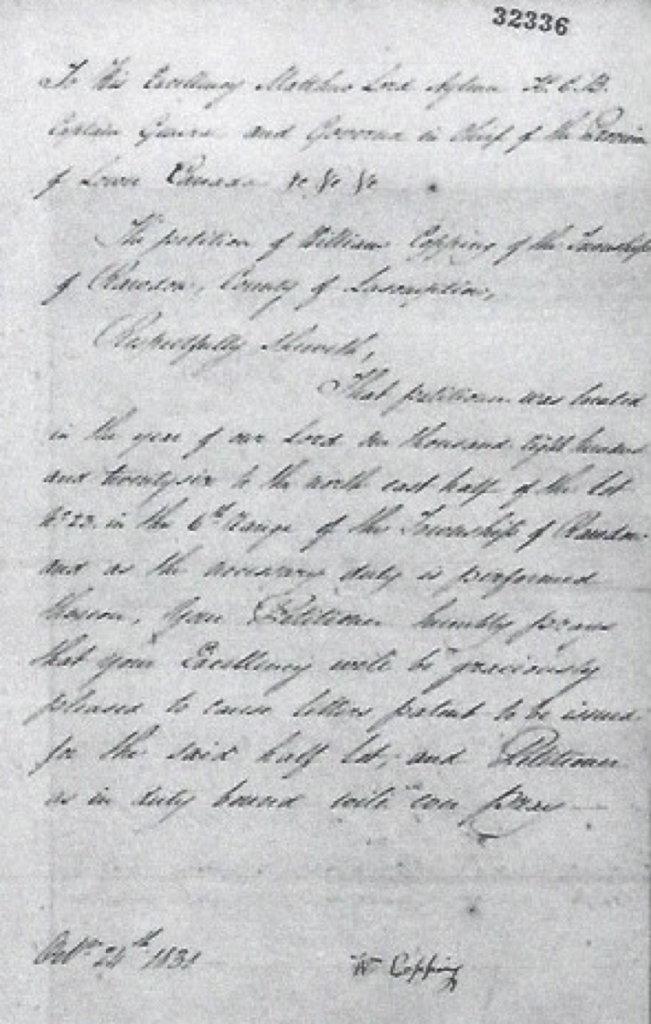 32336
To His Excellency Matthew Lord Aylmer K. C. B.
Captain General and Governor in Chief of the Province
of Lower Canada &c &c &c
The petition of William Copping of the Township
of Rawdon, County of Lassomption,
Respectfully Sheweth,
That petitioner was located
in the year of our Lord one thousand eight hundred
and twenty six to the north east half of the lot
No 23 in the 6th range of the Township of Rawdon
and as the necessary duty is performed
thereon, Your Petitioner humbly prays
that your Excellency will be graciously
pleased to cause letters patent to be issued
for the said half lot, and Petitioner
as in duty bound will ever pray
Octr 24th 1831
Wm Copping